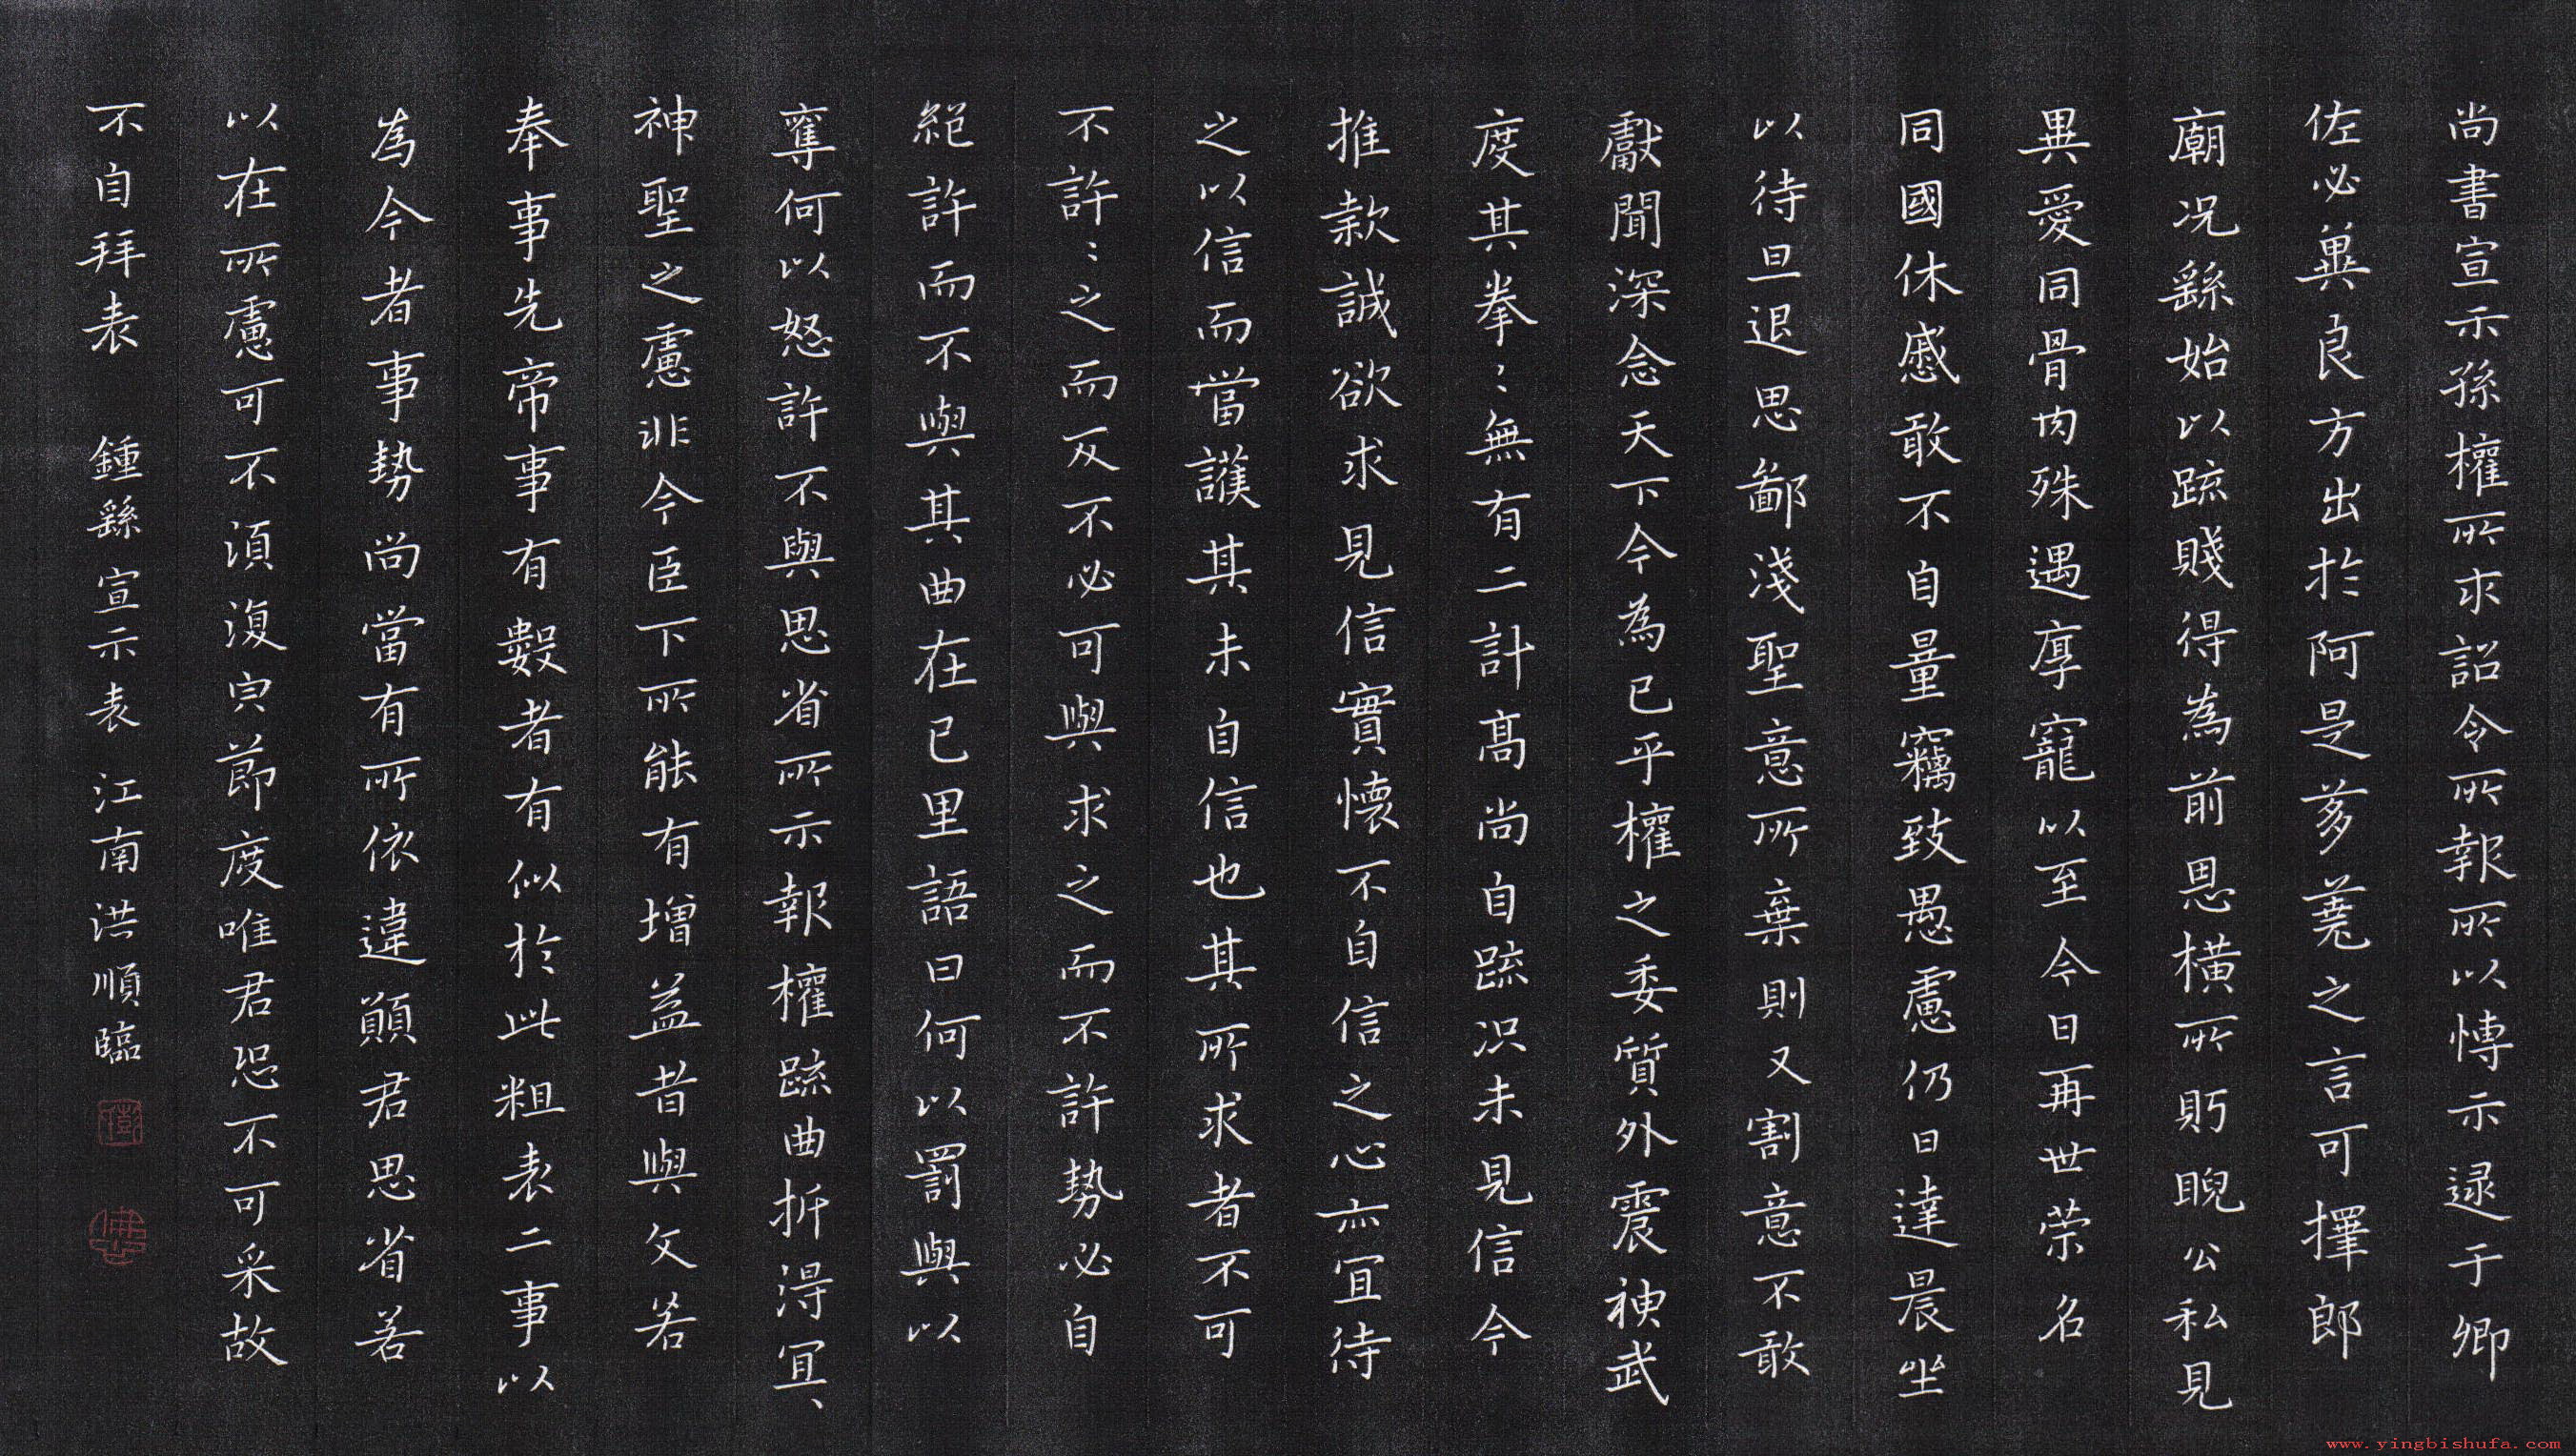 尚書宣示孫權所求詔令所報所以博示逯于卿
佐必冀良方出於阿是芻蕘之言可擇郎
廟況繇始以疏賤得為前恩橫所眄睨公私見
異愛同骨肉殊遇厚寵以至今日再世榮名
同國休慼敢不自量竊致愚慮仍日達晨坐
以待旦退思鄙淺聖意所棄則又割意不敢
獻聞深念天下今為已平權之委質外震神武
度其拳〻無有二計高尚自疏況未見信今
推款誠欲求見信實懷不自信之心亦宜待
之以信而當護其未自信也其所求者不可
不許〻之而反不必可與求之而不許勢必自
絕許而不與其曲在己里語曰何以罰與以
奪何以怒許不與思省所示報權疏曲折得宜〻
神聖之慮非今臣下所能有增益昔與文若
奉事先帝事有數者有似於此粗表二事以
為今者事勢尚當有所依違願君思省若
以在所慮可不須復㒷節度唯君恐不可采故
不自拜表 鍾繇宣示表 江南洪順臨
www.yingbishufa.com